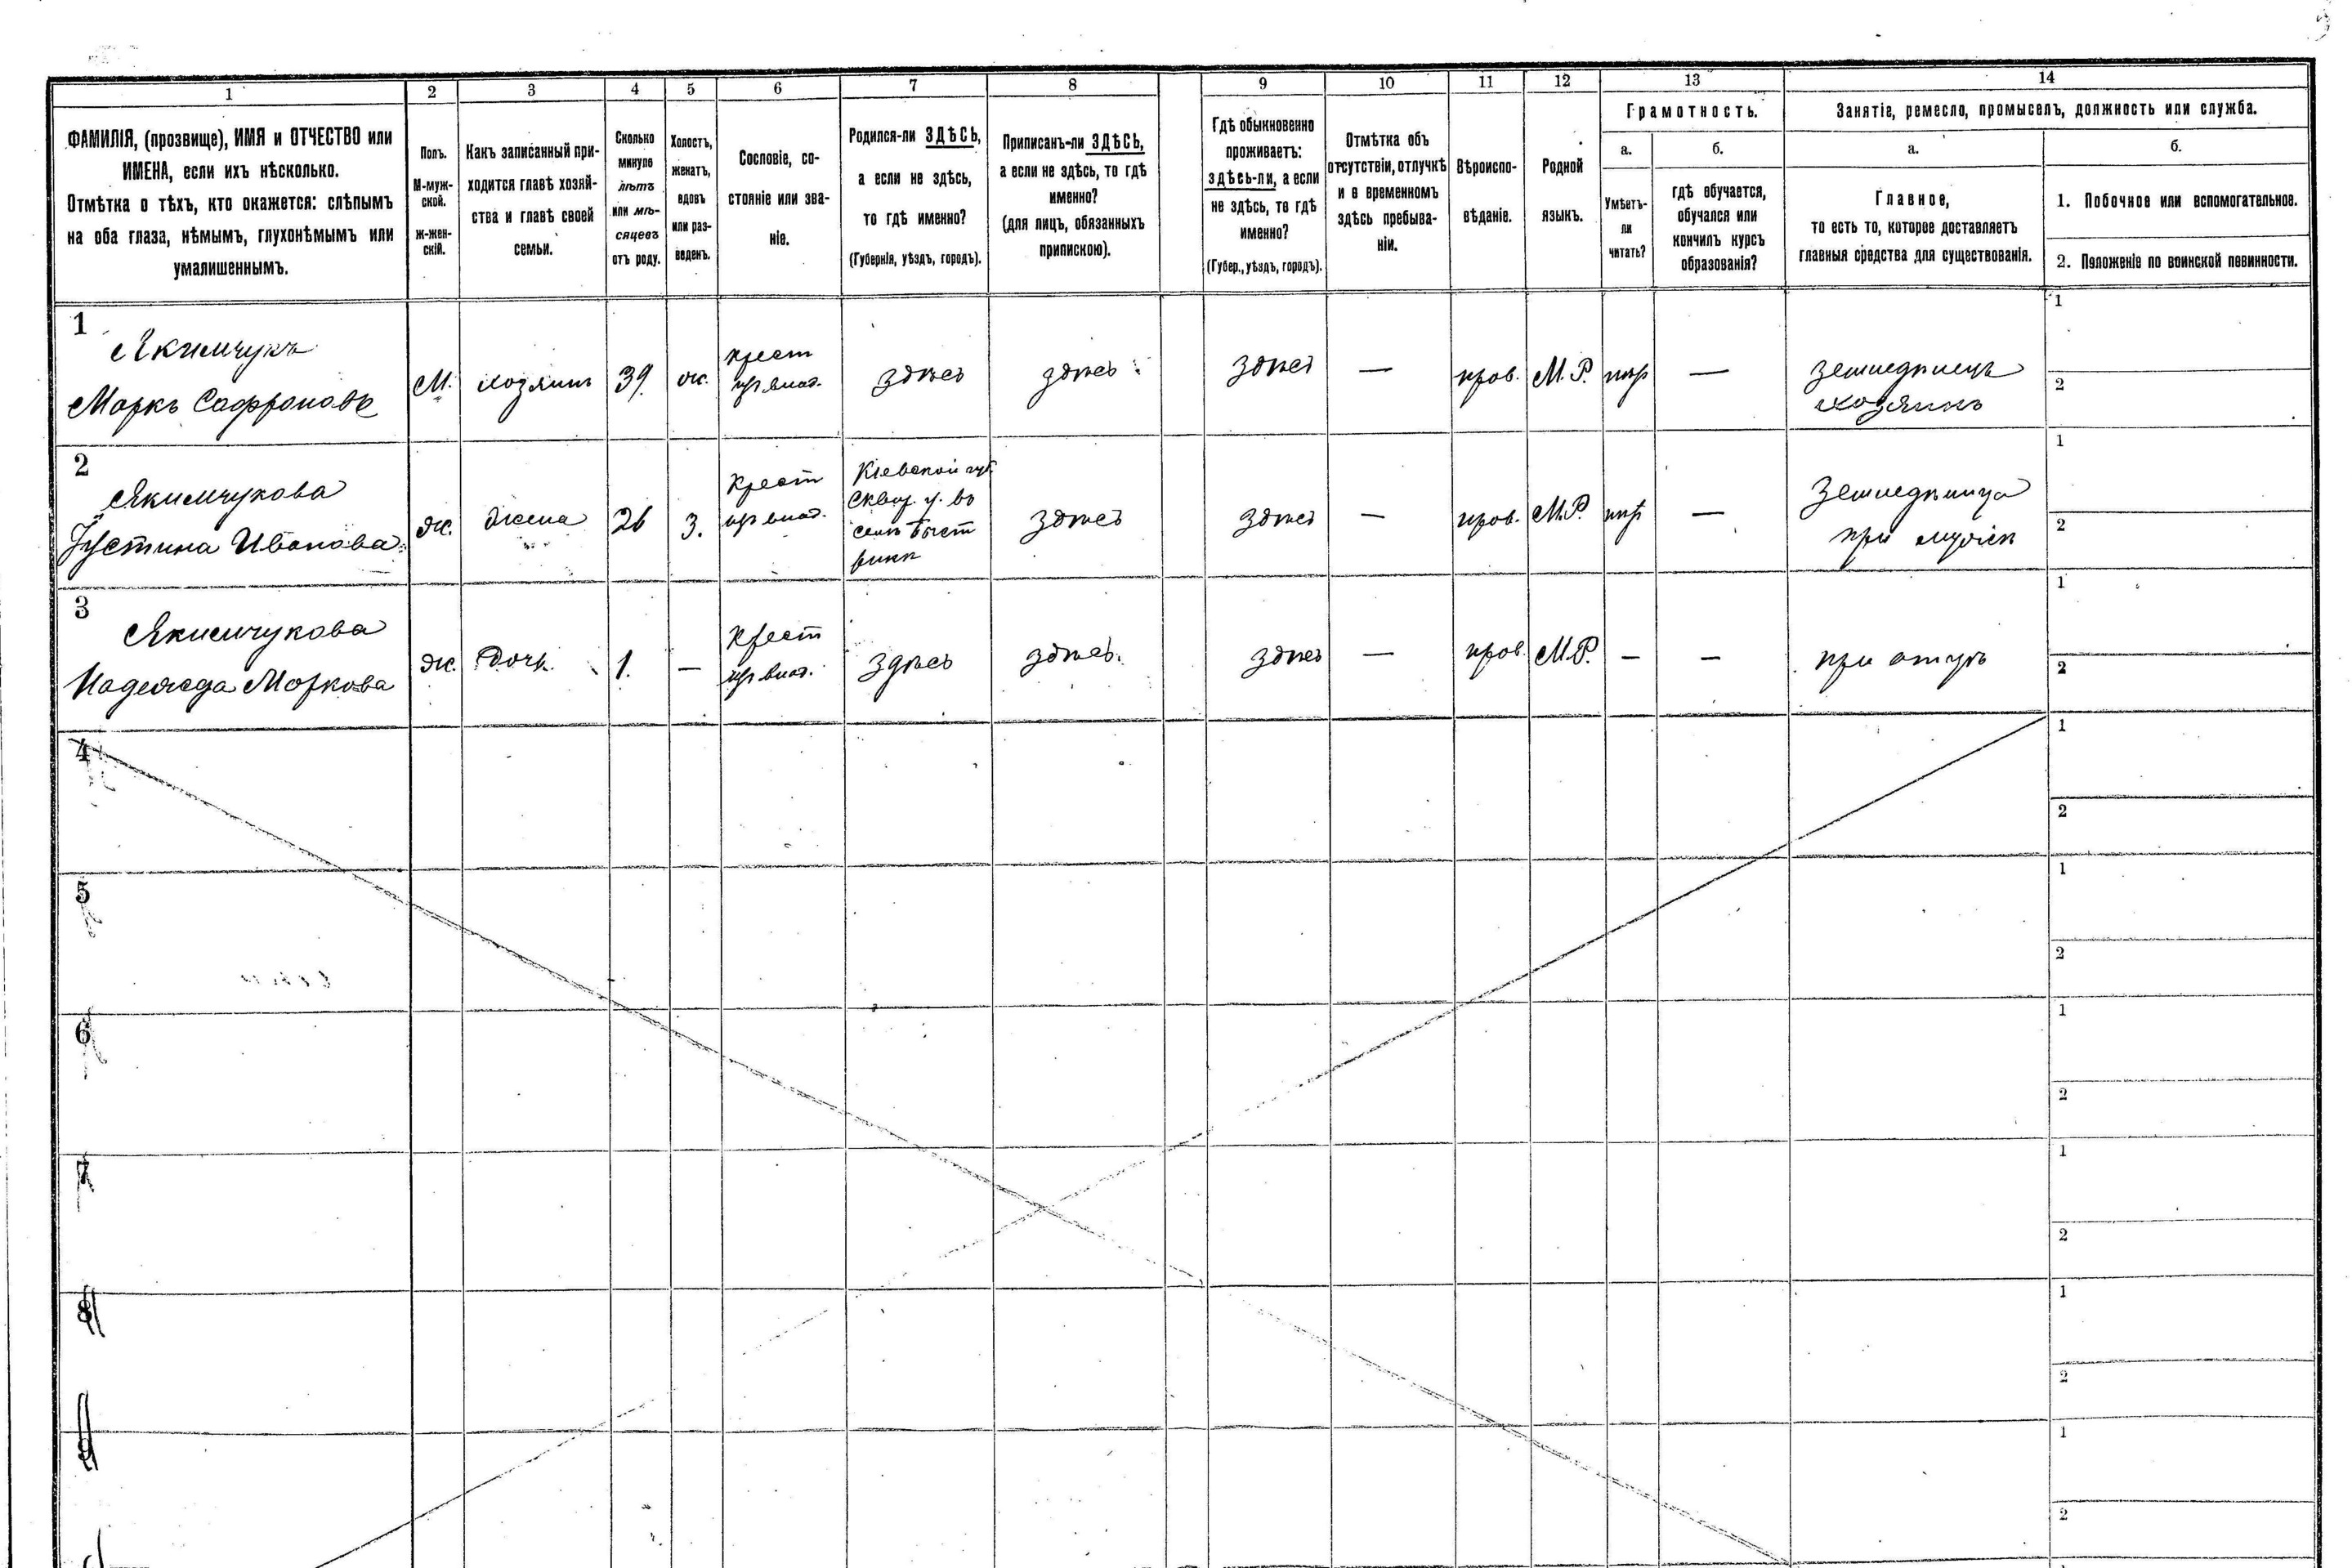 1 2 3 4 5 6 7 8 9 10 11 12 13 14
ФАМИЛІЯ, (прозвище), ИМЯ и ОТЧЕСТВО или
ИМЕНА, если ихъ нѣсколько.
Отмѣтка о тѣхъ, кто окажется: слѣпымъ
на оба глаза, нѣмымъ, глухонѣмымъ или
умалишеннымъ.
Полъ.
М-муж-
ской.
Ж-жен-
скій.
Какъ записанный при-
ходится главѣ хозяй-
ства и главѣ своей
семьи.
Сколько
минуло
лѣтъ
или мѣ-
сяцевъ
отъ роду.
Холостъ,
женатъ,
вдовъ
или раз-
веденъ.
Сословіе, со-
стояніе или зва-
ніе.
Родился-ли ЗДѢСЬ,
а если не здѣсь,
то гдѣ именно?
(Губернія, уѣздъ, городъ).
Приписанъ-ли ЗДѢСЬ,
а если не здѣсь, то гдѣ
именно?
(для лицъ, обязанныхъ
припискою).
Гдѣ обыкновенно
проживаетъ:
здѣсь-ли, а если
не здѣсь, то гдѣ
именно?
(Губер., уѣздъ, городъ).
Отмѣтка объ
отсутствіи, отлучкѣ
и о временномъ
здѣсь пребыва-
ніи.
Вѣроиспо-
вѣданіе.
Родной
языкъ.
Грамотность.
а.
Умѣетъ-
ли
читать?
б.
гдѣ обучается,
обучался или
кончилъ курсъ
образованія?
Занятіе, ремесло, промыселъ, должность или служба.
а.
Главное,
то есть то, которое доставляетъ
главныя средства для существованія.
б.
1. Побочное или вспомогательное.
2. Положеніе по воинской повинности.
1
Якимчукъ
Маркъ Сафроновъ
М.
хозяинъ
39.
ж.
крест
изъ влад.
здѣсь
здѣсь
здѣсь
—
прав.
М. Р.
—
земледѣлецъ
хозяинъ
1
2
2
Якимчукова
Устина Иванова
ж.
жена
26
з.
Крест
изъ влад.
Кіевской губ
Сквир. у. въ
здѣсь
здѣсь
—
прав.
М.Р.
—
Земледѣлица
при мужѣ
1
2
3
Якимчукова
Надежда Маркова
ж.
дочь
1.
—
Крест
изъ влад.
здѣсь
здѣсь.
здѣсь
—
прав.
М.Р.
—
—
при отцѣ
1
2
4
1
2
5
1
2
6
1
2
7
1
2
8
1
2
9
1
2